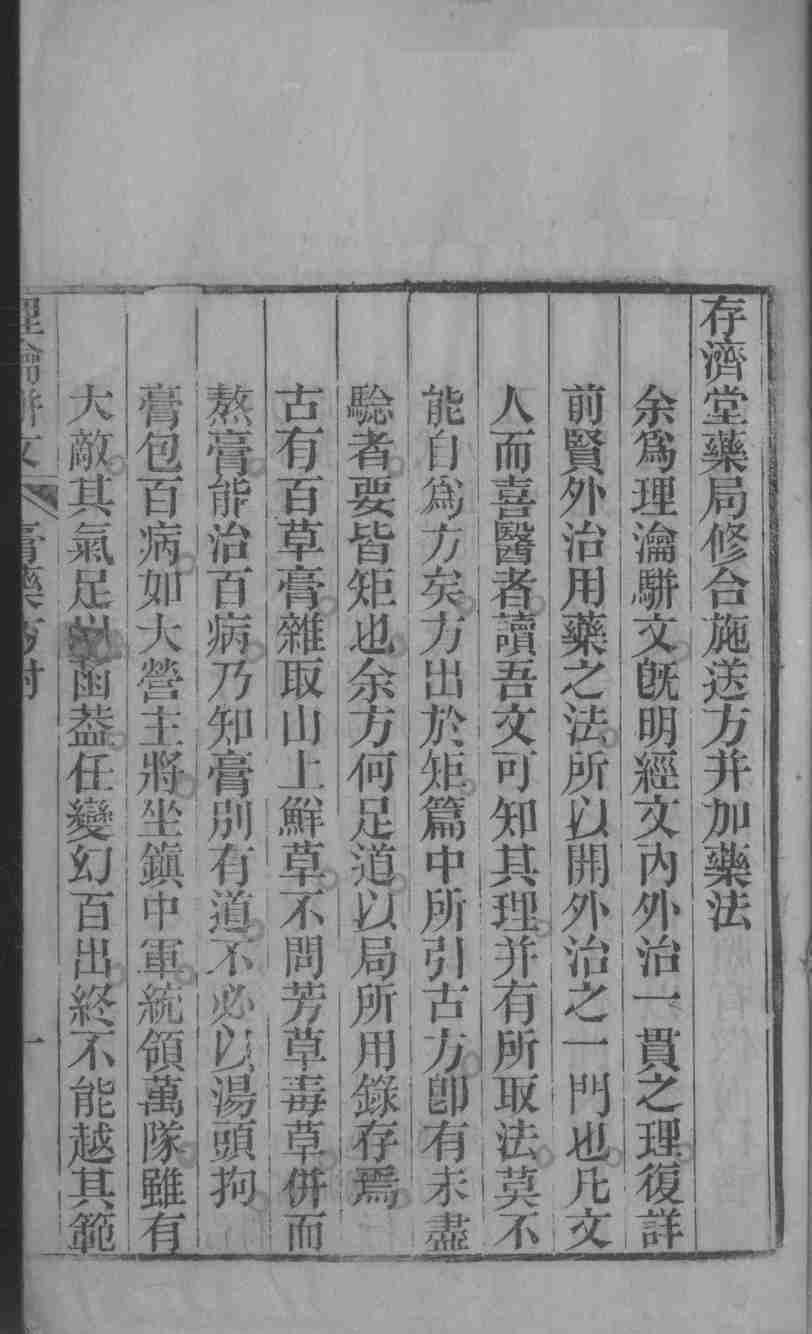 存濟堂藥局修合施送方并加藥法
余爲理瀹駢文旣明經文內外治一貫之理復詳
前賢外治用藥之法所以開外治之一門也凡文
人而喜醫者讀吾文可知其理并有所取法莫不
能自爲方矣方出於矩篇中所引古方卽有未盡
驗者要皆矩也余方何足道以局所用錄存焉
古有百草膏雜取山上鮮草不問芳草毒草併而
熬膏能治百病乃知膏別有道不必以湯頭拘
膏包百病如大營主將坐鎭中軍統領萬隊雖有
大敵其氣足以函葢任變幻百出終不能越其範
理瀹駢文 膏藥方 一